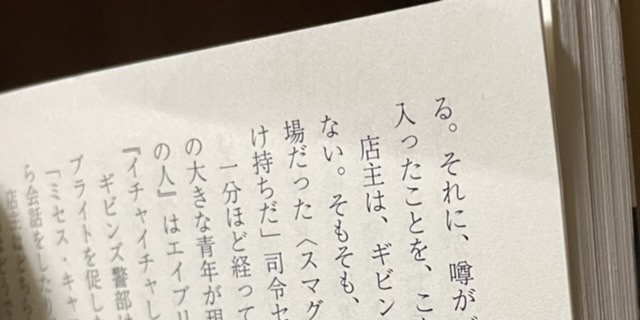 る。それに、噂が
入ったことを、こ
店主は、ギビン
ない。そもそも、
場だった〈スマグ
け持ちだ」司令セ
一分ほど経って
の大きな青年が現
の人』はエイブリ
『イチャイチャし
ギビンズ警部は
ブライトを促した
「ミセス・キャ
ら会話をしたり
店主とともら